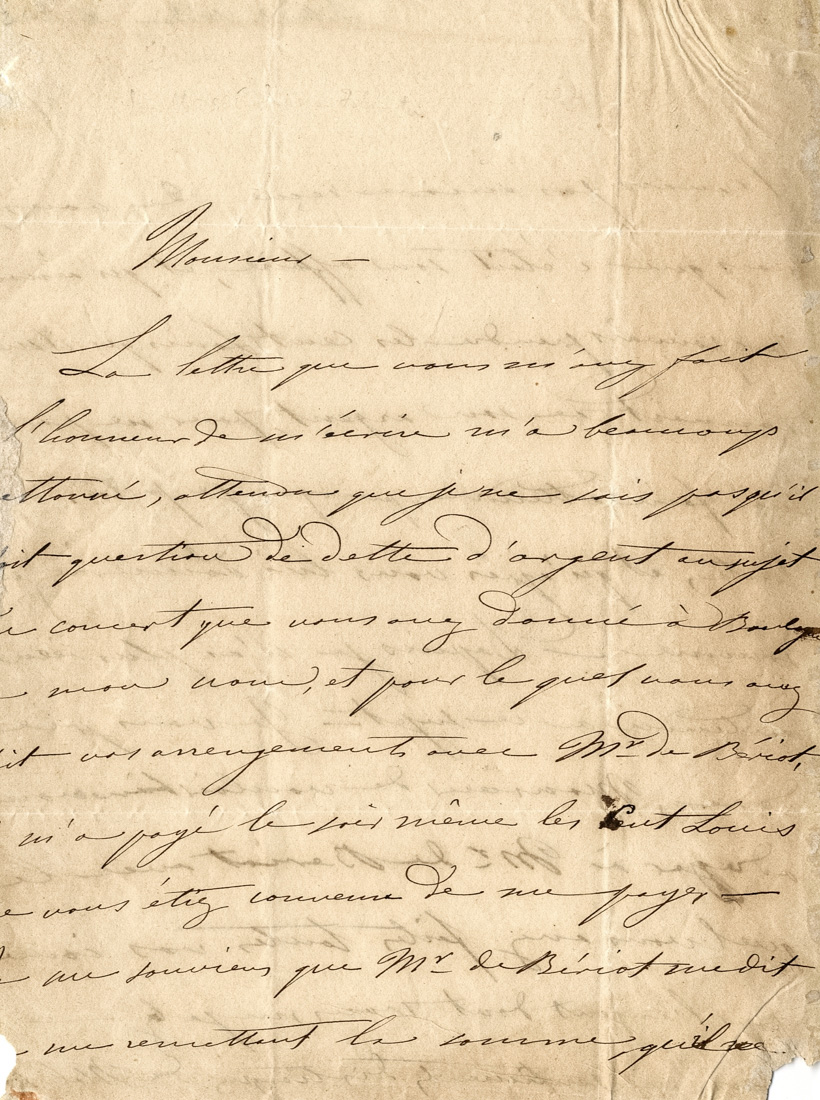 Monsieur —
La lettre que vous m'avez fait
l'honneur de m'écrire m'a beaucoup
ettonné, attendu que je ne sais pas qu'il
oit question de dette d'argent au sujet
u concert que vous avez donné à Boulogn
mon nom, et pour le quel vous avez
it vos arrengements avec Mr. de Bériot,
m'a payé le soir même les Cent Louis
e vous étiez convenu de me payer —
me souviens que Mr. de Bériot me dit
me remettant la somme, qu'il ne